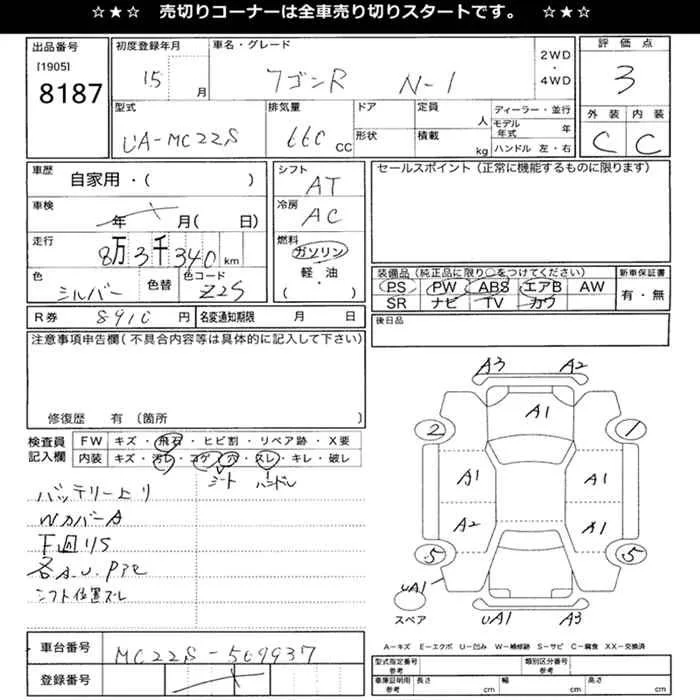 ☆★☆ 売切りコーナーは全車売り切りスタートです。 ☆★☆
出品番号 初度登録年月 車名・グレード 2WD ・ 4WD 評価点
[1905] 8187 15 月 ワゴンR N-1 3
型式 排気量 ドア 定員 ディーラー・並行 外装 内装
UA-MC22S 660 CC 形状 人 積載 kg モデル年式 年 ハンドル 左・右 C C
車歴 自家用・( ) シフト AT セールスポイント(正常に機能するものに限ります)
車検 年 月( 日) 冷房 AC
走行 8万3千340km 燃料 ガソリン
軽・油
( ・ )
色 シルバー 色替 色コード Z2S
装備品(純正品に限り○をつけてください) 新車保証書
PS PW ABS エアB AW 有・無
SR ナビ TV カワ
R券 8910 円 名変通知期限 月 日 後日品
注意事項申告欄(不具合内容等は具体的に記入して下さい)
修復歴 有 〔箇所 〕
検査員記入欄 FW キズ・飛石・ヒビ割・リペア跡・X要
内装 キズ・汚レ・コゲ・穴・スレ・キレ・破レ
シート ハンドル
バッテリー上リ
WカバーA
下回りS
各A.U.
シフト位置ズレ
A3 A2
A1
2 1
A1 A1
A2 A1
5 5
UA1
スペア UA1 A3
車台番号 MC22S-569937
登録番号
A-キズ E-エクボ U-凹み W-補修跡 S-サビ C-腐食 XX-交換済
型式指定番号 参考 類別区分番号 参考
車庫証明用 参考 長さ cm 幅 cm 高さ cm